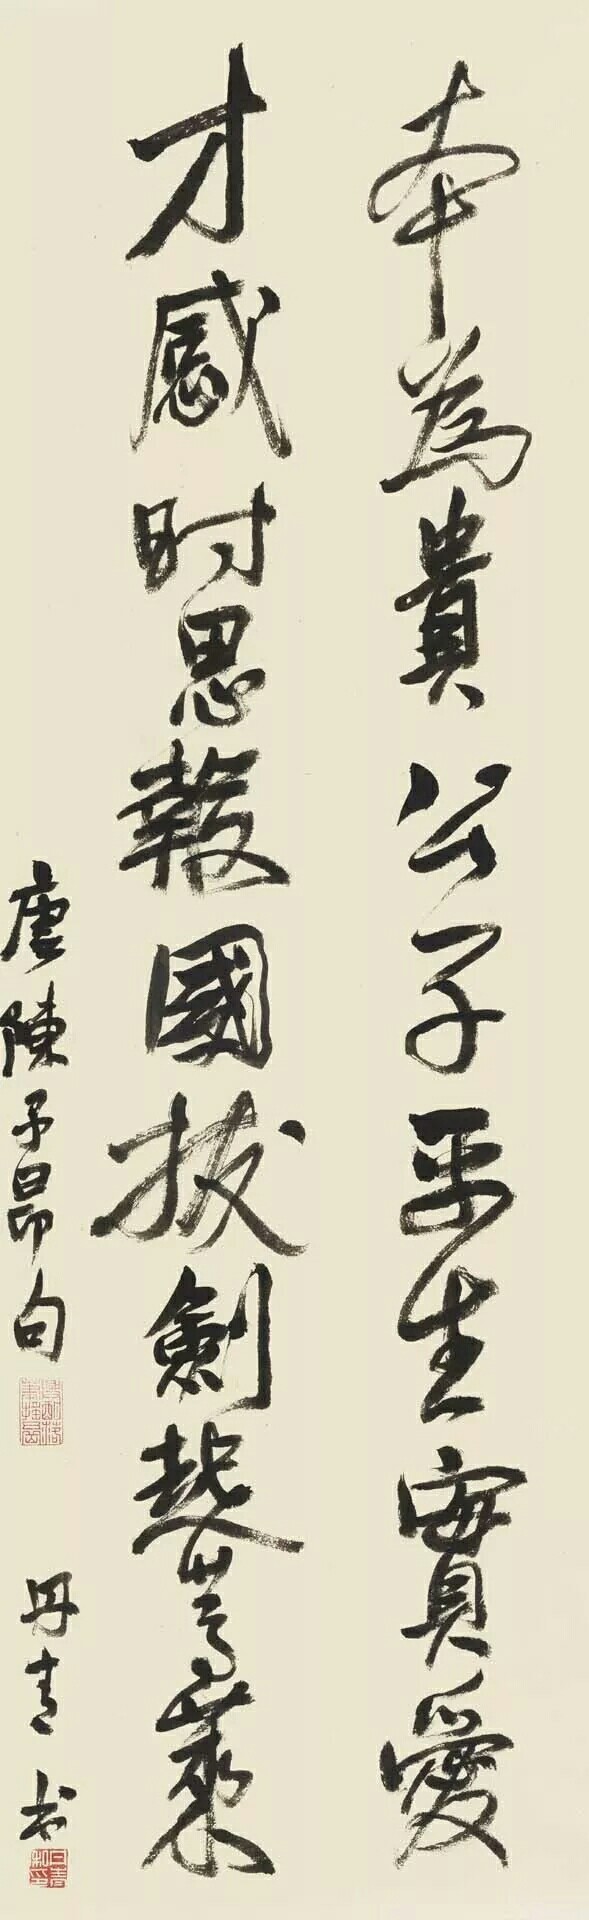 本為貴公子平生實愛
才感时思報國拔劍起蒿萊
唐陳子昂句
丹青书